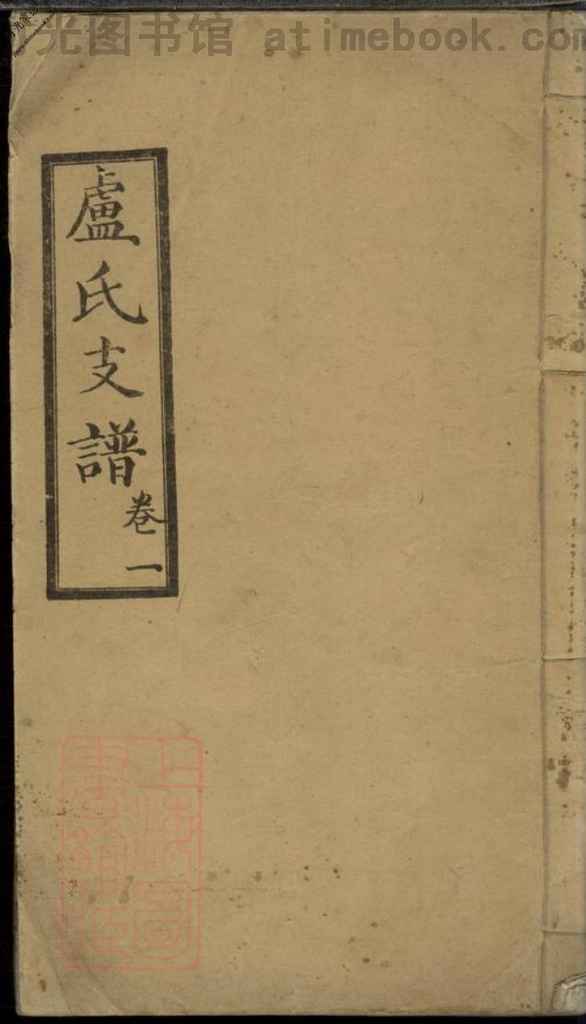 光图书馆 atimebook.com
盧氏支譜
卷一